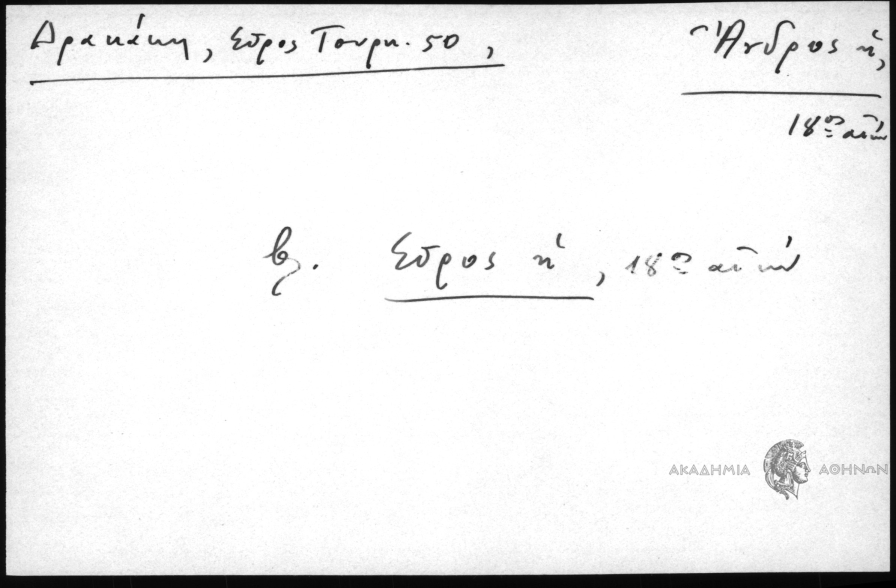 Δρακάκη, Σῦρος Τουρκ. 50,
Ἄνδρος ἡ,
18ος αἰών
βλ. Σῦρος ἡ, 18ος αἰών
ΑΚΑΔΗΜΙΑ ΑΘΗΝΩΝ